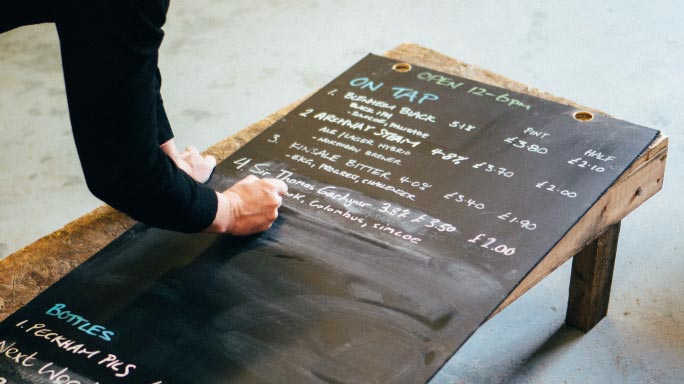 OPEN 12-6pm
ON TAP PINT HALF
1. BLENHEIM BLACK 5.1% £3.80 £2.10
BLACK IPA
- SIMCOE, PALISADE
2 ARCHWAY STEAM 4.8% £3.70 £2.00
ALE/LAGER HYBRID
- NORTHERN BREWER
3. KINSALE BITTER 4.0% £3.40 £1.90
- EKG, PROGRESS, CHALLENGER
4) Sir Thomas 3.8% £3.50 £2.00
Columbus, Simcoe
BOTTLES
1. PECKHAM PILS
Next